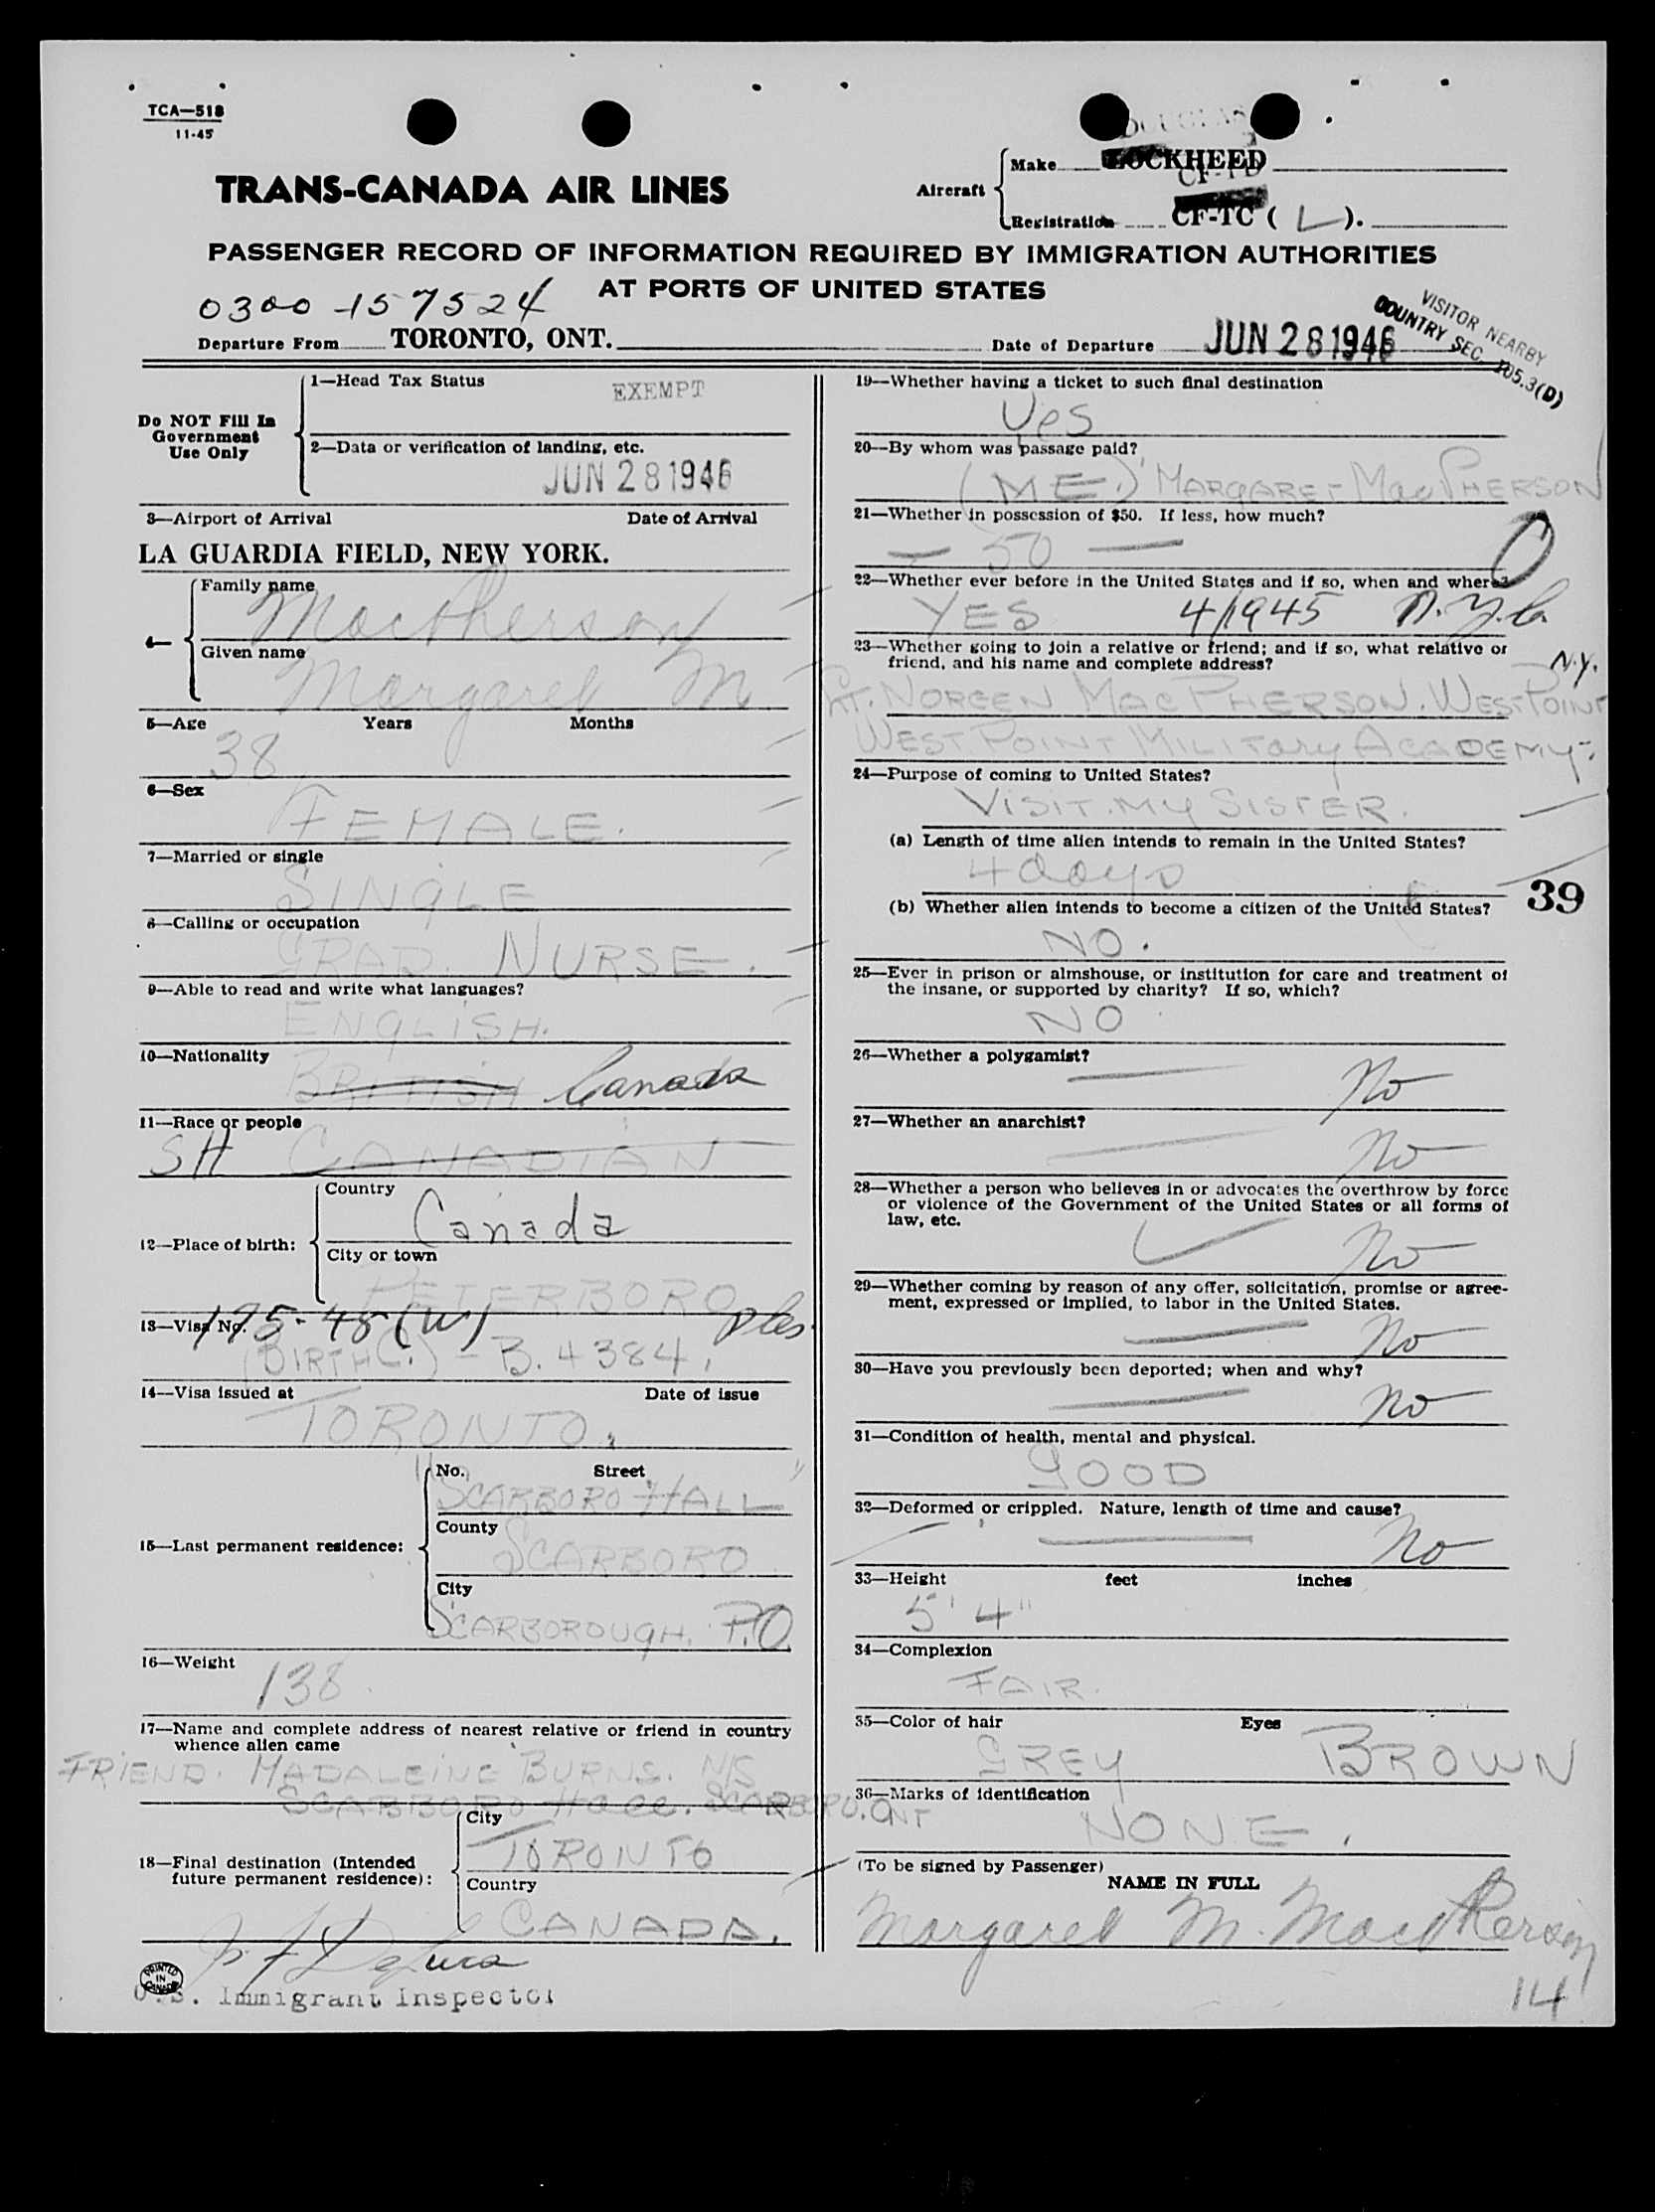 TCA—518
11-45
DOUGLAS
TRANS-CANADA AIR LINES
Aircraft
Make LOCKHEED
CF-TD
Registration CF-TC ( L ).
PASSENGER RECORD OF INFORMATION REQUIRED BY IMMIGRATION AUTHORITIES
AT PORTS OF UNITED STATES
0300-157524
Departure From TORONTO, ONT.
Date of Departure JUN 28 1946
VISITOR NEARBY
COUNTRY SEC. 105.3(D)
Do NOT Fill In
Government
Use Only
1—Head Tax Status
EXEMPT
2—Data or verification of landing, etc.
JUN 28 1946
3—Airport of Arrival Date of Arrival
LA GUARDIA FIELD, NEW YORK.
4—
Family name
MacPherson
Given name
Margaret M.
5—Age Years Months
38
6—Sex
FEMALE.
7—Married or single
SINGLE
8—Calling or occupation
GRAD. NURSE.
9—Able to read and write what languages?
ENGLISH.
10—Nationality
BRITISH Canada
11—Race or people
SH CANADIAN
12—Place of birth:
Country
Canada
City or town
PETERBORO
13—Visa No.
175-48 (W)
(BIRTH C.) - B. 4384,
14—Visa issued at Date of issue
TORONTO.
15—Last permanent residence:
No. Street
"SCARBORO HALL"
County
SCARBORO
City
SCARBOROUGH. P.O.
16—Weight
138.
17—Name and complete address of nearest relative or friend in country
whence alien came
FRIEND. MADALEINE BURNS. N/S
SCARBORO Hall. SCARBORO. ONT
18—Final destination (Intended
future permanent residence):
City
TORONTO
Country
CANADA.
PRINTED
IN
CANADA
U.S. Immigrant Inspector
19—Whether having a ticket to such final destination
Yes
20—By whom was passage paid?
(ME.) MARGARET MacPHERSON
21—Whether in possession of $50. If less, how much?
— 50 —
22—Whether ever before in the United States and if so, when and where?
YES 4/1945 N.Y.C.
23—Whether going to join a relative or friend; and if so, what relative or
friend, and his name and complete address?
N.Y.
LT. NOREEN MACPHERSON. WEST POINT
WEST POINT MILITARY ACADEMY.
24—Purpose of coming to United States?
VISIT. MY SISTER.
(a) Length of time alien intends to remain in the United States?
4 days
39
(b) Whether alien intends to become a citizen of the United States?
NO.
25—Ever in prison or almshouse, or institution for care and treatment of
the insane, or supported by charity? If so, which?
NO
26—Whether a polygamist?
No
27—Whether an anarchist?
No
28—Whether a person who believes in or advocates the overthrow by force
or violence of the Government of the United States or all forms of
law, etc.
No
29—Whether coming by reason of any offer, solicitation, promise or agree-
ment, expressed or implied, to labor in the United States.
No
30—Have you previously been deported; when and why?
No
31—Condition of health, mental and physical.
GOOD
32—Deformed or crippled. Nature, length of time and cause?
No
33—Height feet inches
5' 4"
34—Complexion
FAIR.
35—Color of hair Eyes
GREY BROWN
36—Marks of identification
NONE.
(To be signed by Passenger)
NAME IN FULL
Margaret M. MacPherson
14